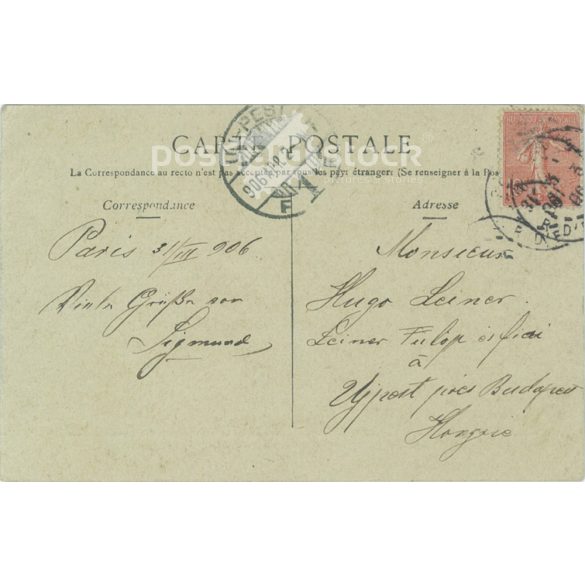 CARTE POSTALE
La Correspondance au recto n'est pas acceptée par tous les pays étrangers (Se renseigner à la Pos
Correspondance
Adresse
Paris 31/VII 906
Viele Grüße von
Sigmund
Monsieur
Hugo Leiner
Leiner Fülöp és fiai
à
Ujpest près Budapest
Hongrie